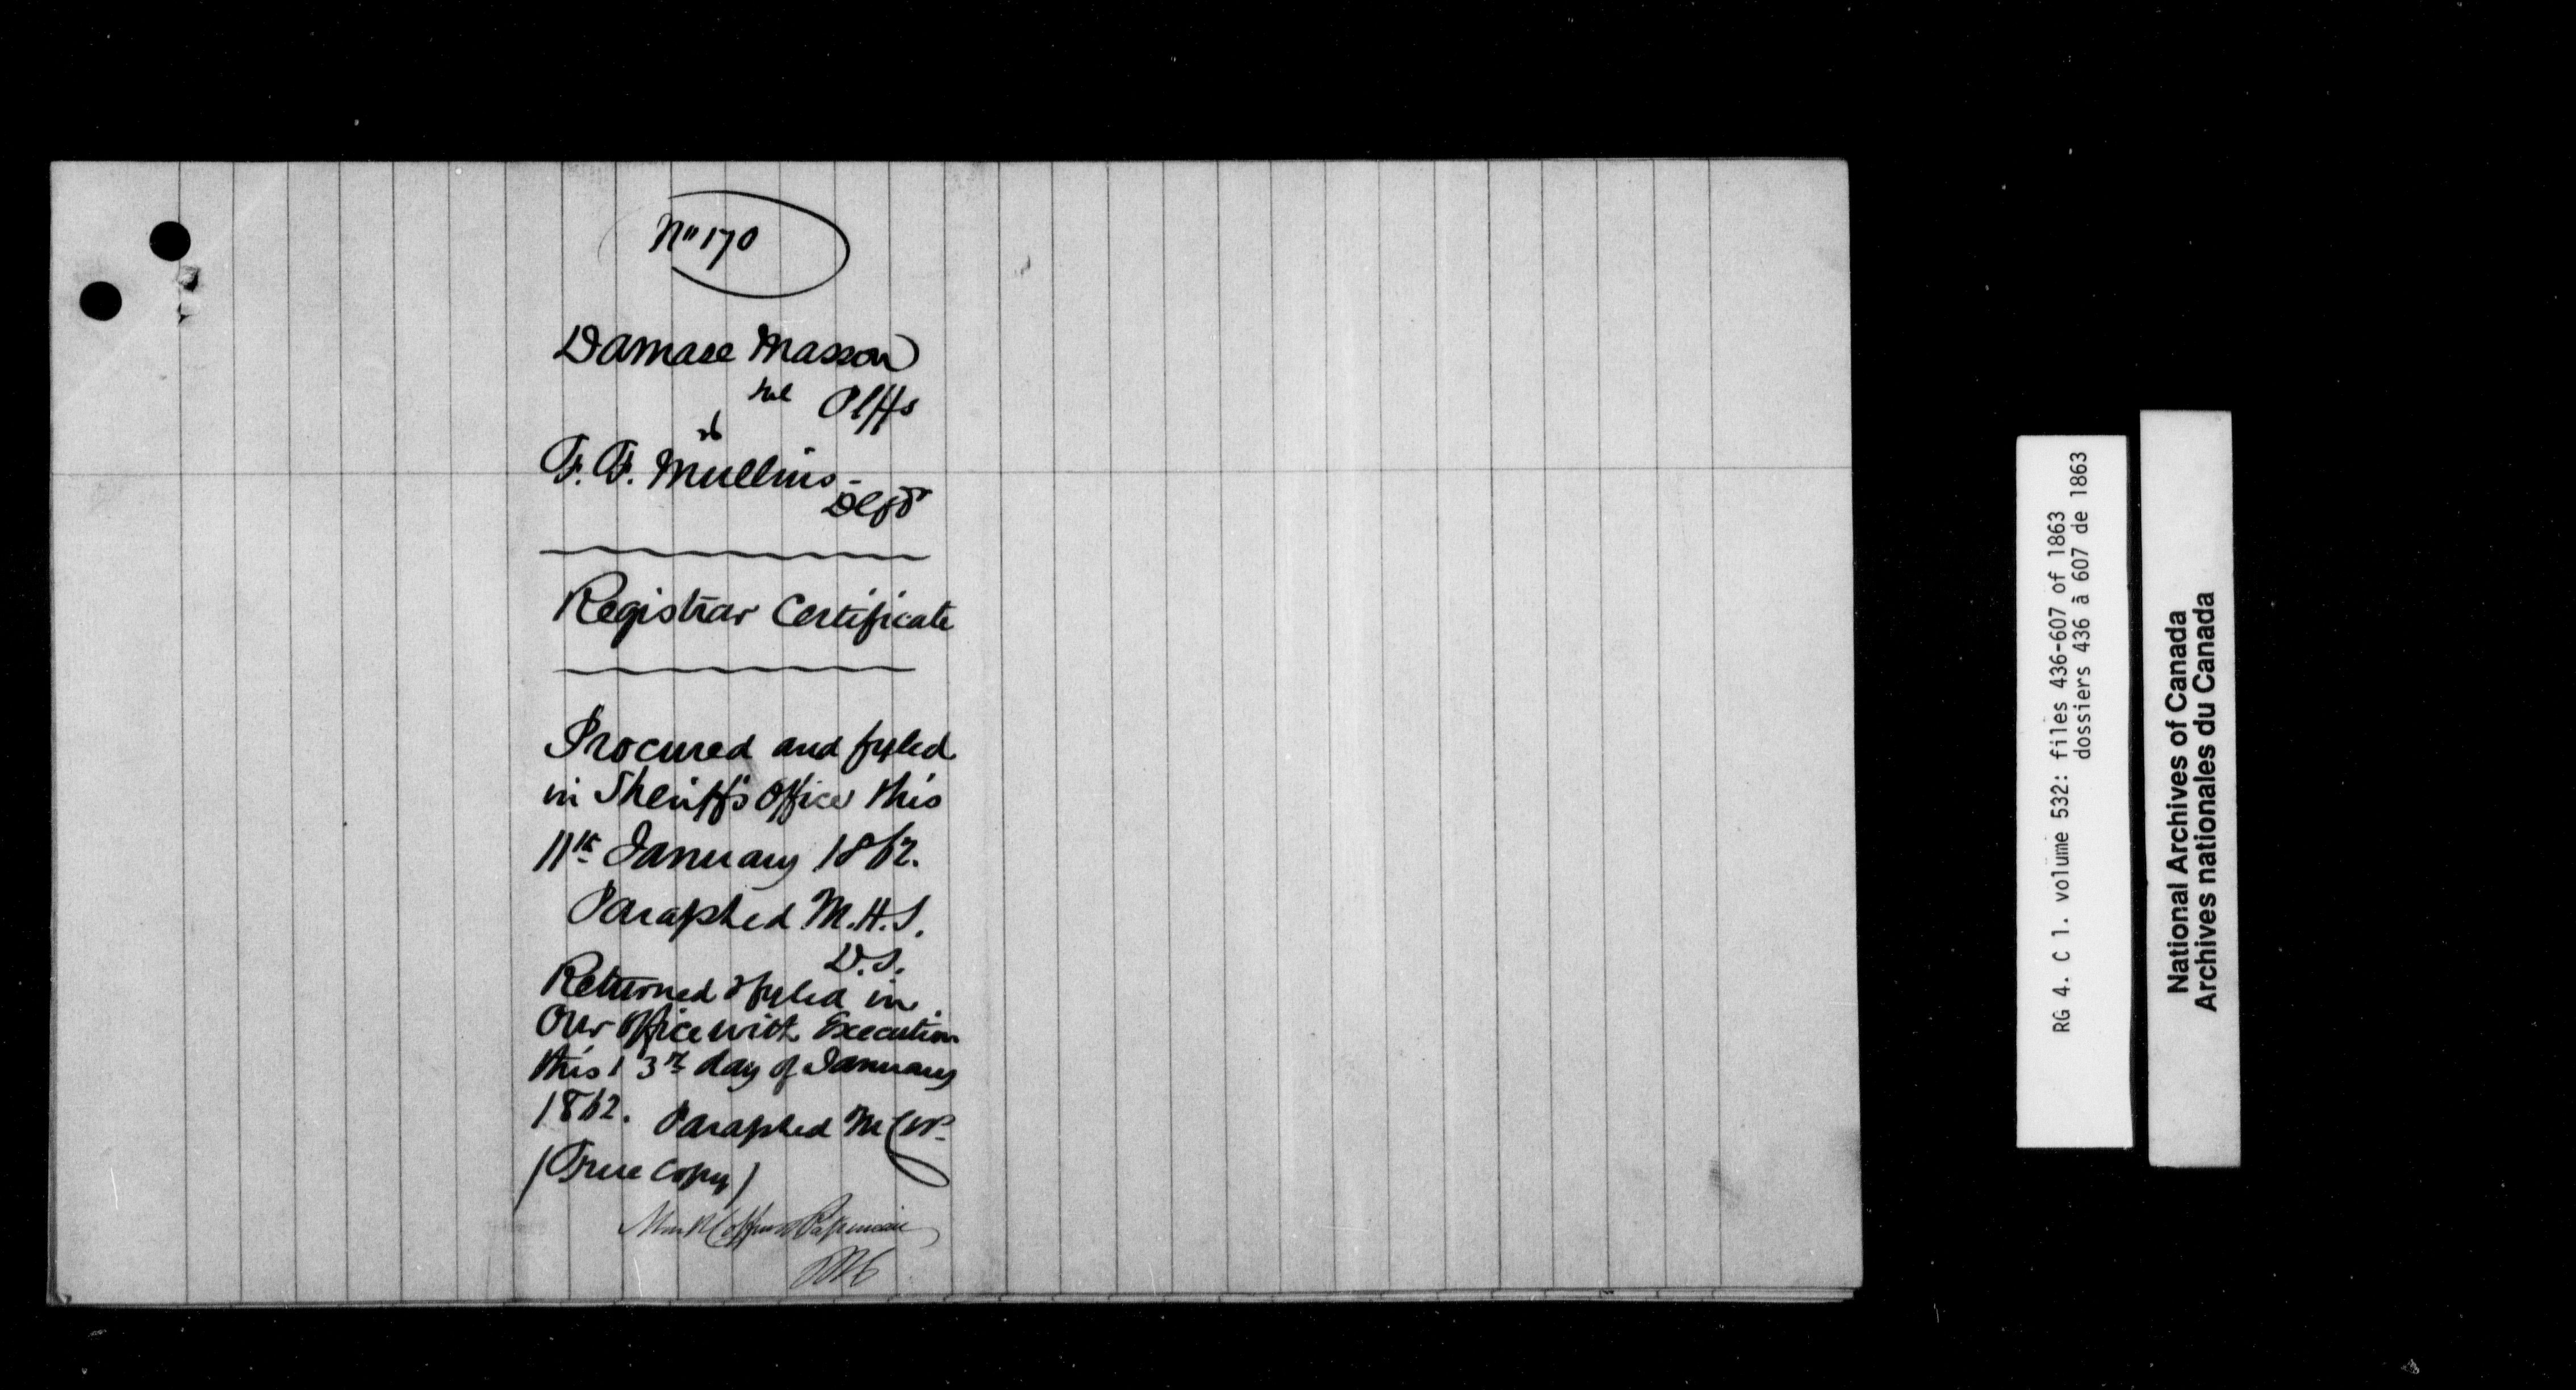 No 170
Damase Masson
et al Plffs
vs
F. F. Mullins -
Deft
Registrar Certificate
Procured and fyled
in Sheriff's Office this
11th January 1862.
Paraphed M.H.S.
D.S.
Returned & fyled in
our office with Execution
this 13th day of January
1862. Paraphed M C & P.
(True Copy)
Monk Coffin & Papineau
PSC
RG 4. C 1. volume 532: files 436-607 of 1863
dossiers 436 à 607 de 1863
National Archives of Canada
Archives nationales du Canada